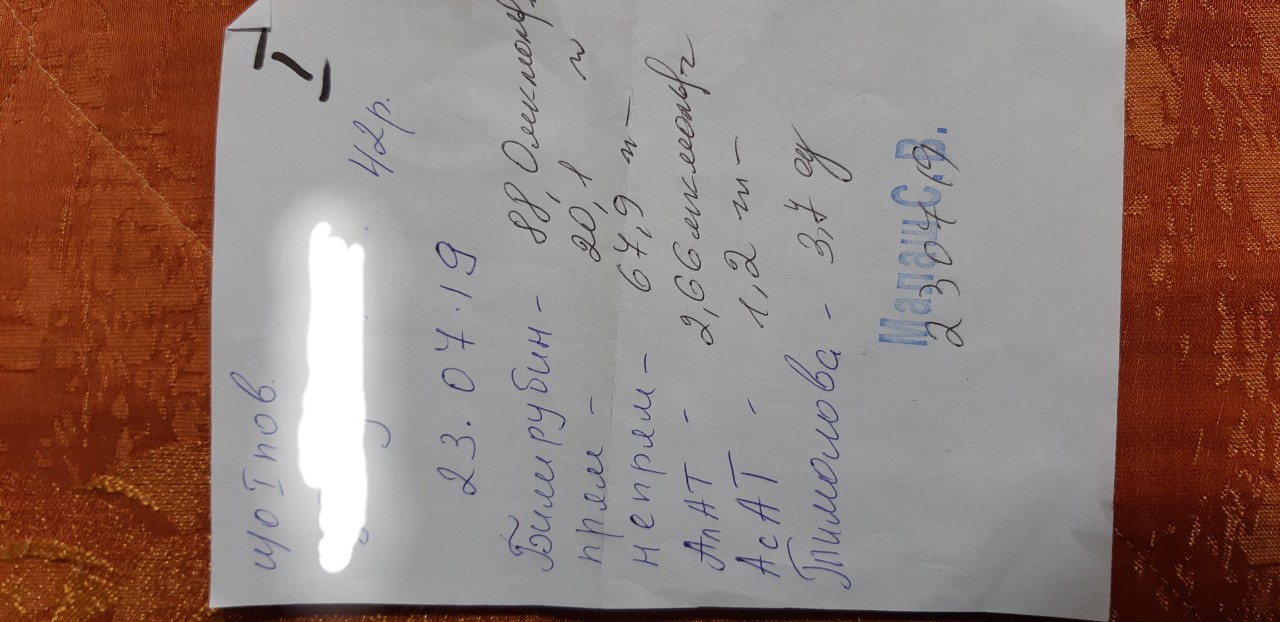 I пов.
42р.
23.07.19
Билирубин - 88,0 мкмоль/г
прям - 20,1 -"-
непрям - 67,9 -"-
АлАТ - 2,66 мкмоль/г
АсАТ - 1,2 -"-
Тимолова - 3,7 од
Малаш С.В.
23 07 19